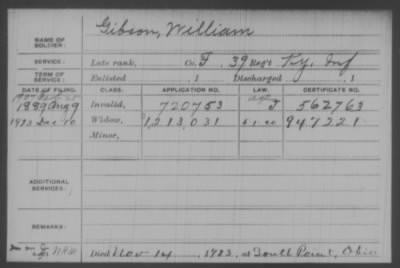 NAME OF SOLDIER: Gibson, William
SERVICE: Late rank, Co. F, 39 Reg't Ky. Inf
TERM OF SERVICE: Enlisted , 1 Discharged , 1
DATE OF FILING. CLASS. APPLICATION NO. LAW. CERTIFICATE NO.
1889 Aug 9 Invalid, 720753 J 562763
1923 Dec 10 Widow, 1,213,031 947221
Minor,
ADDITIONAL SERVICES:
REMARKS:
Died Nov 14, 1923, at South Point, Ohio